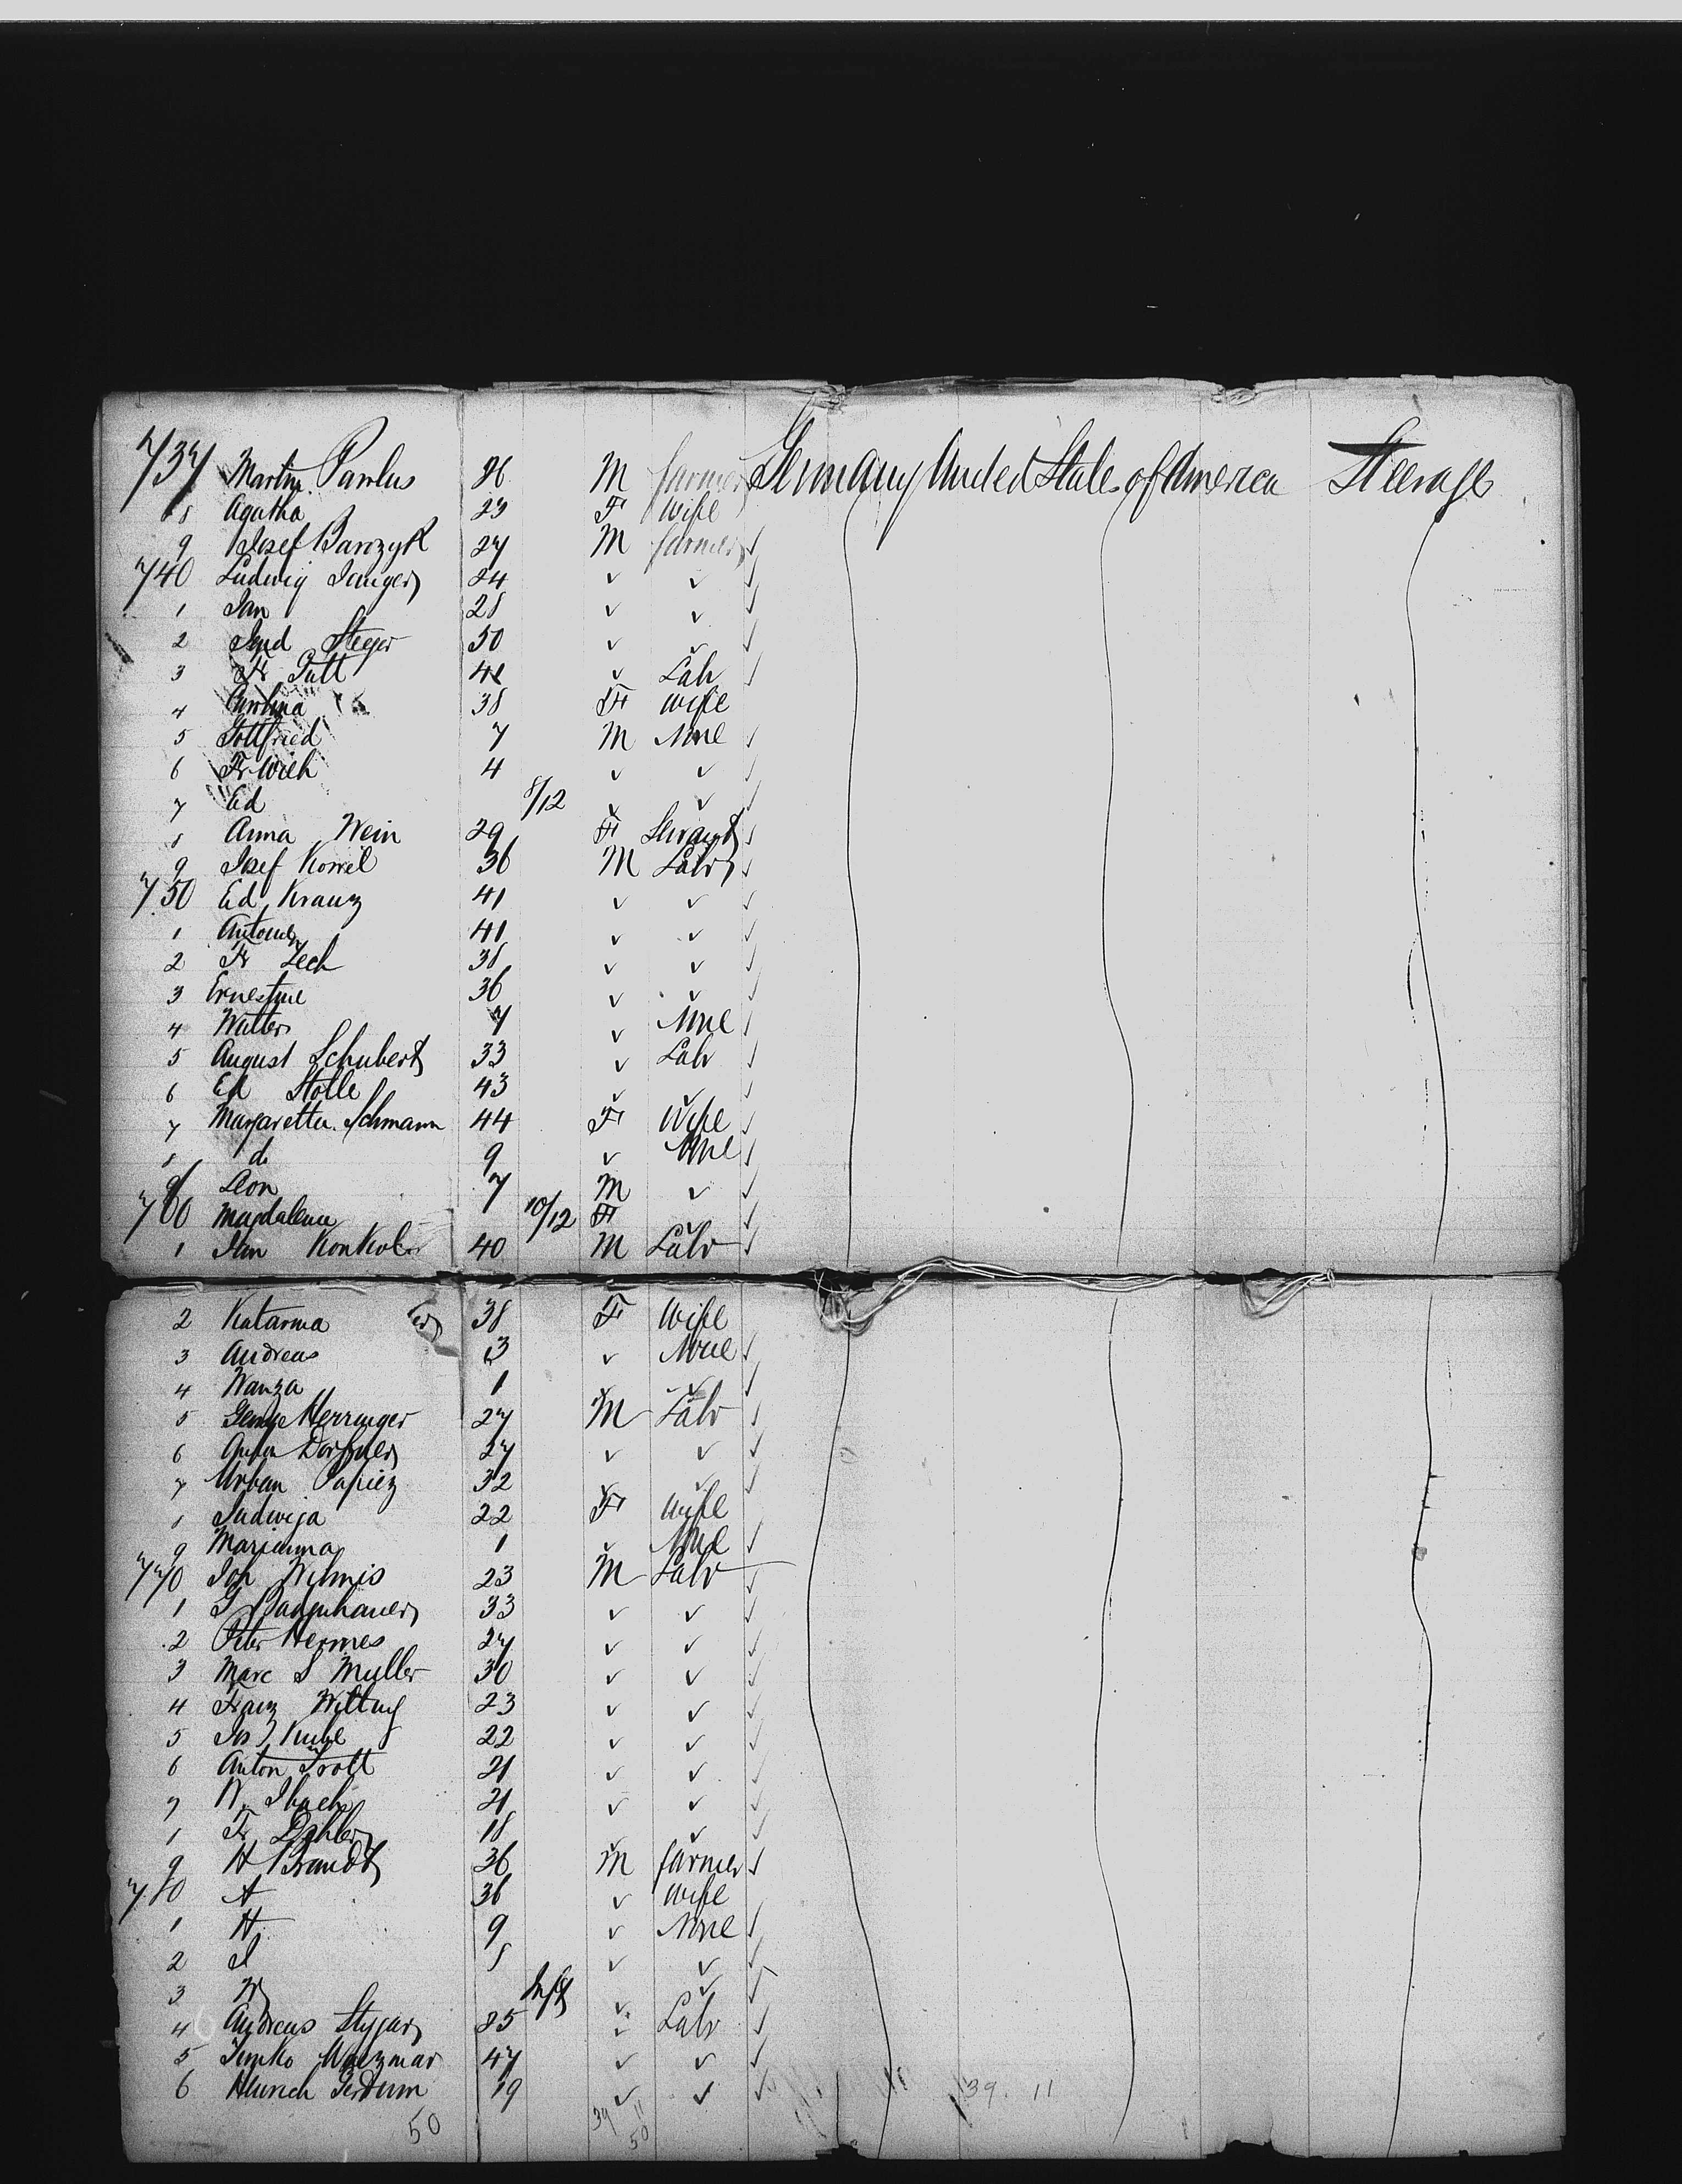 737 Martin Pawlus 26 M farmer Germany United States of America Steerage
8 Agatha 23 F Wife
9 Josef Barczyk 27 M farmer
740 Ludwig 24 ✓ ✓
1 Jan 28 ✓ ✓
2 Steger 50 ✓ ✓
3 Fr 42 ✓ Labr
4 38 F Wife
5 Gottfried 7 M None
6 Fr Wilh 4 ✓ ✓
7 Ed 8/12 ✓ ✓
8 Anna Wein 29 F Servant
9 Josef 36 M Labr
750 Ed Krauz 41 ✓ ✓
1 41 ✓ ✓
2 Fr Zech 38 ✓ ✓
3 Ernestine 36 ✓ ✓
4 Walter 7 ✓ None
5 August Schubert 33 ✓ Labr
6 Ed Stolle 43 ✓ ✓
7 Margaretta Schmann 44 F Wife
8 do 9 ✓ None
9 Leon 7 M ✓
760 Magdalena 10/12 F ✓
1 40 M Labr
2 Katarina 38 F Wife
3 Andreas 3 ✓ None
4 Wanza 1 ✓ ✓
5 George Herringer 27 M Labr
6 27 ✓ ✓
7 Urban Papiez 32 ✓ ✓
8 Ludwija 22 F Wife
9 Marianna 1 ✓ None
770 Joh Wilmis 23 M Labr
1 33 ✓ ✓
2 Peter Hermes 27 ✓ ✓
3 Marc S Muller 30 ✓ ✓
4 Franz Wittig 23 ✓ ✓
5 Jos 22 ✓ ✓
6 Anton Trott 21 ✓ ✓
7 21 ✓ ✓
8 Fr Dahler 18 ✓ ✓
9 H Brandt 36 M farmer
780 A 36 ✓ Wife
1 H 9 ✓ None
2 8 ✓ ✓
3 W Inft ✓ ✓
4 Andreas Stygar 25 ✓ Labr
5 47 ✓ ✓
6 Heinrich 19 ✓ ✓
39 11
50
39 11
50